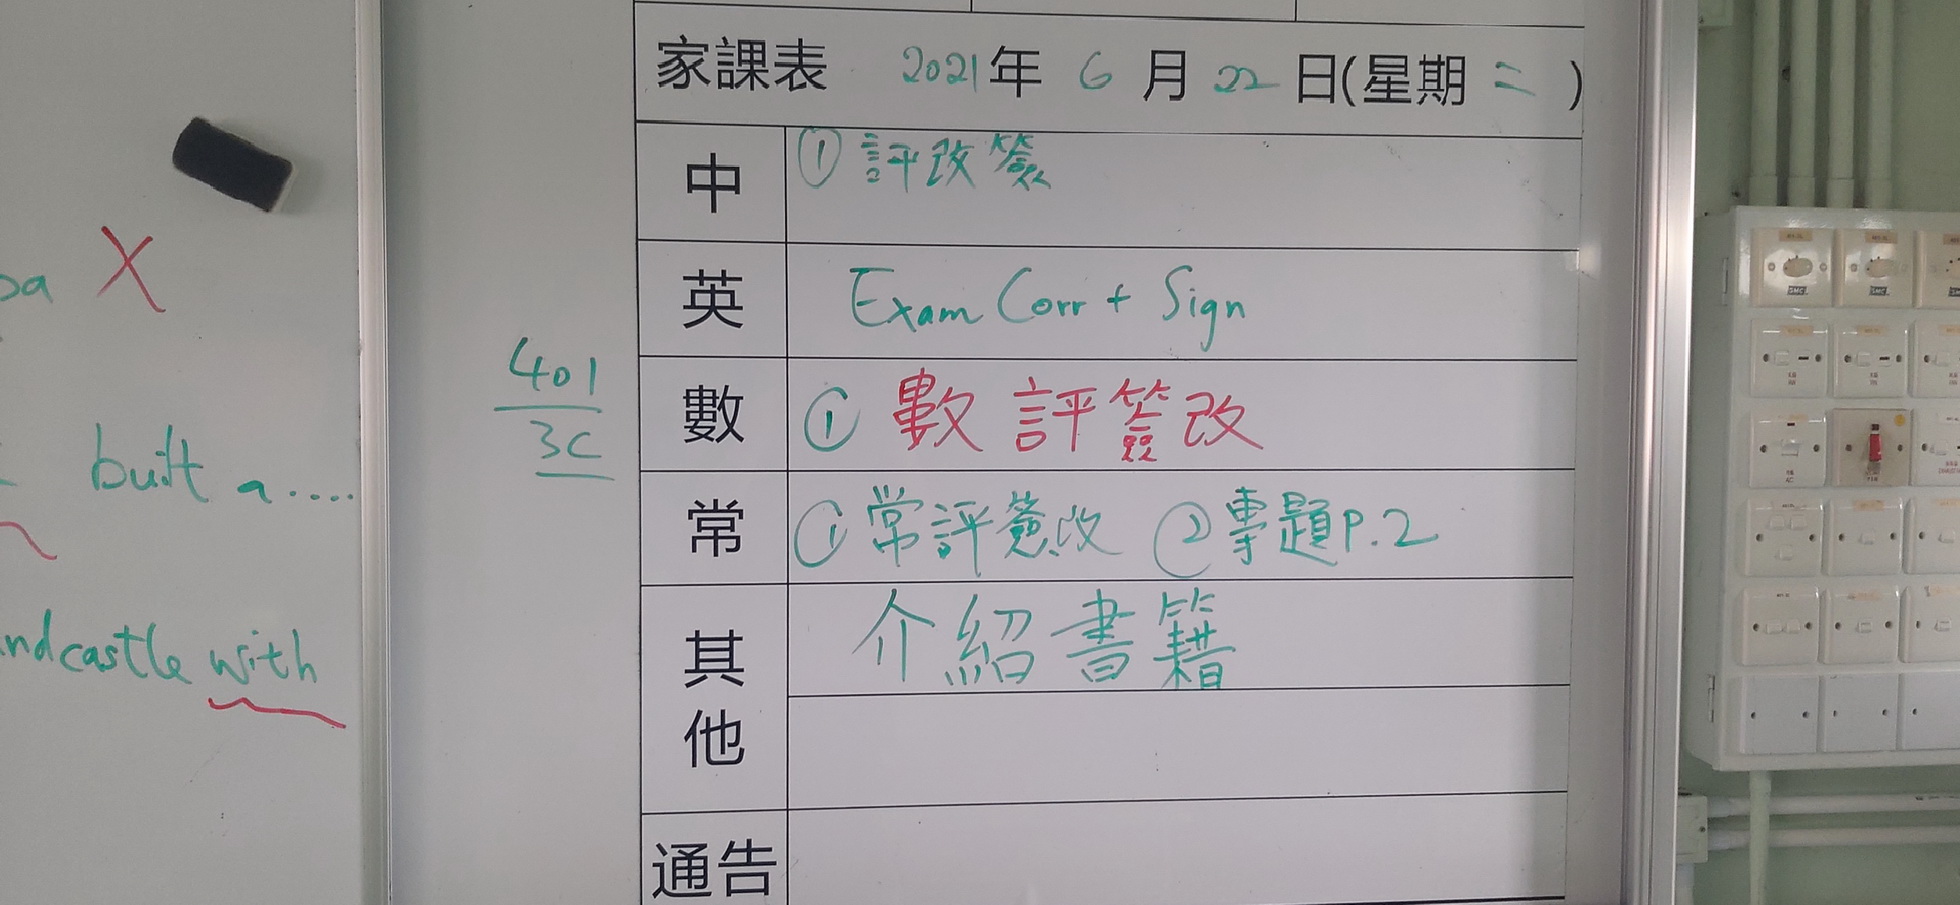 家課表 2021年 6 月 22 日(星期 二 )
中 ① 評改簽
英 Exam Corr + Sign
數 ① 數評簽改
常 ① 常評簽改 ② 專題P.2
其他 介紹書籍
通告
401
3C
X
built a....
ndcastle with